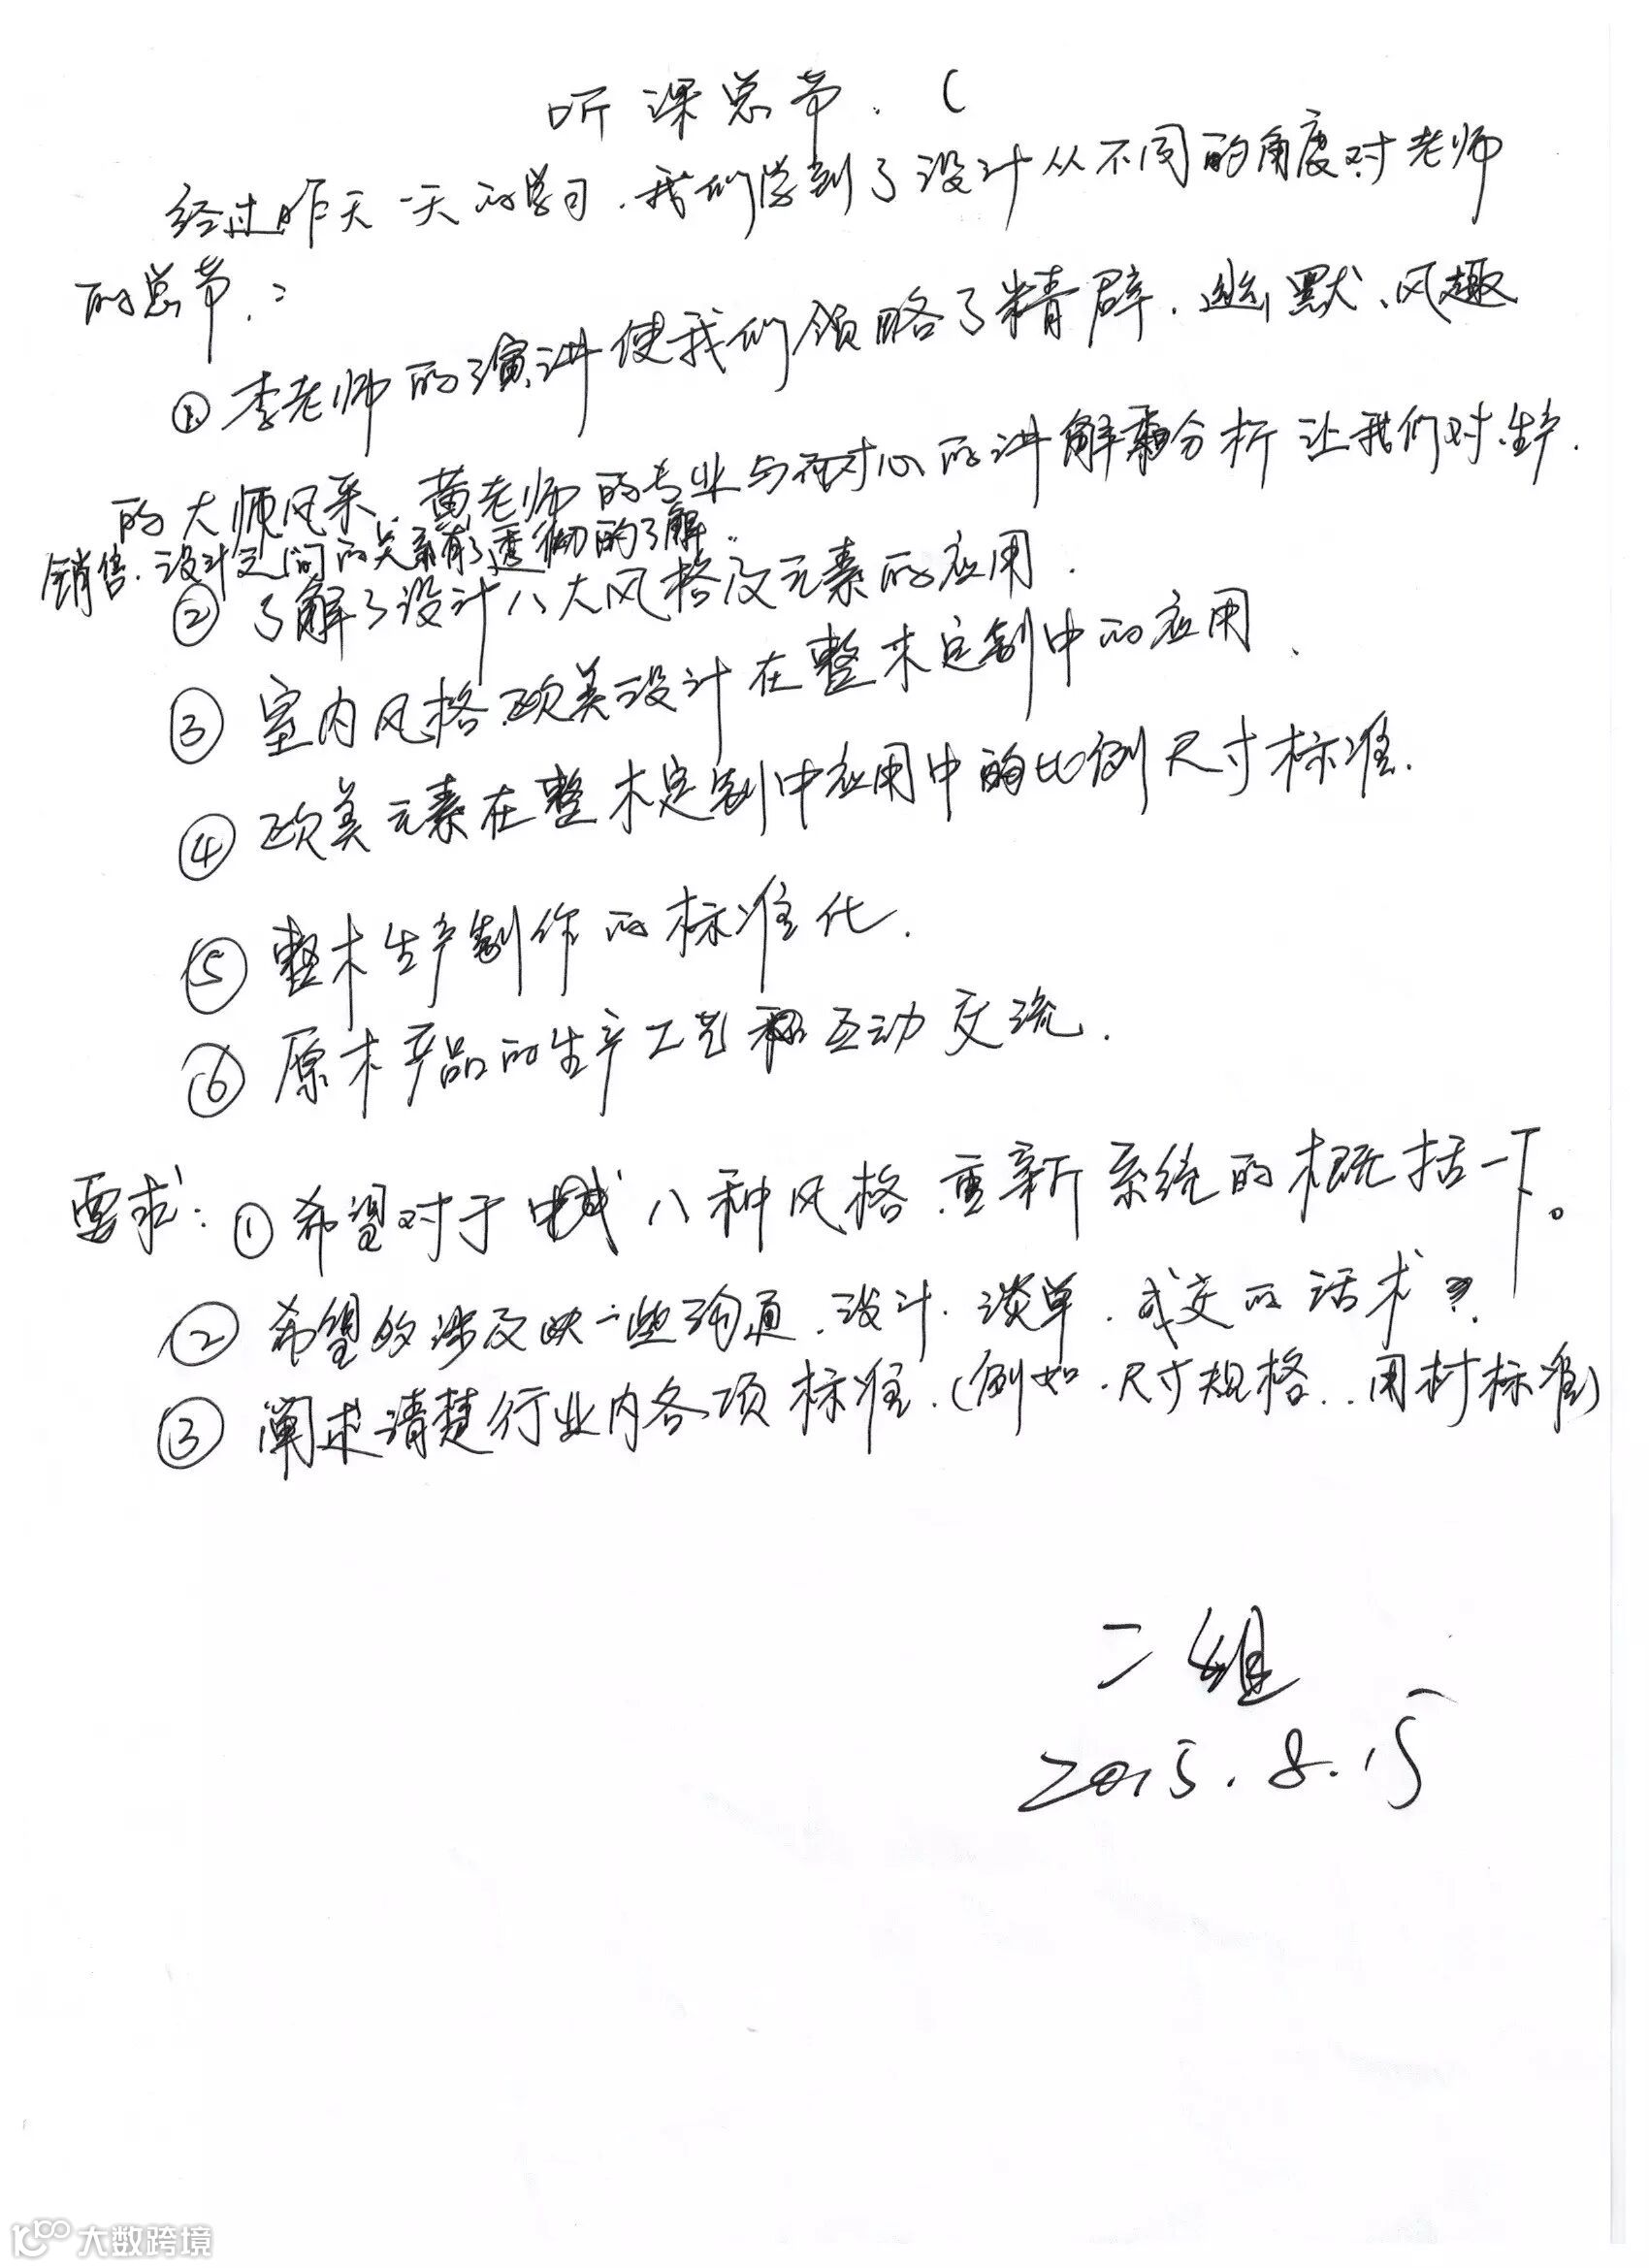 听课总节. (
经过昨天一天的学习.我们学到了设计从不同的角度对老师
的总节:
① 李老师的演讲使我们领略了精辟、幽默、风趣
的大师风采、黄老师的专业与耐心的讲解分析让我们对生产.
销售.设计之间的关系有了透彻的了解.
② 了解了设计八大风格及元素的应用.
③ 室内风格欧美设计在整木定制中的应用.
④ 欧美元素在整木定制中应用中的比例尺寸标准.
⑤ 整木生产制作的标准化.
⑥ 原木产品的生产工艺和互动交流.
要求: ① 希望对于 八种风格 重新系统的概括一下。
② 希望的涉及 一些沟通.设计.谈单.成交的话术.
③ 阐述清楚行业内各项标准.(例如.尺寸规格..用材标准)
二组
2015.8.15
大数跨境